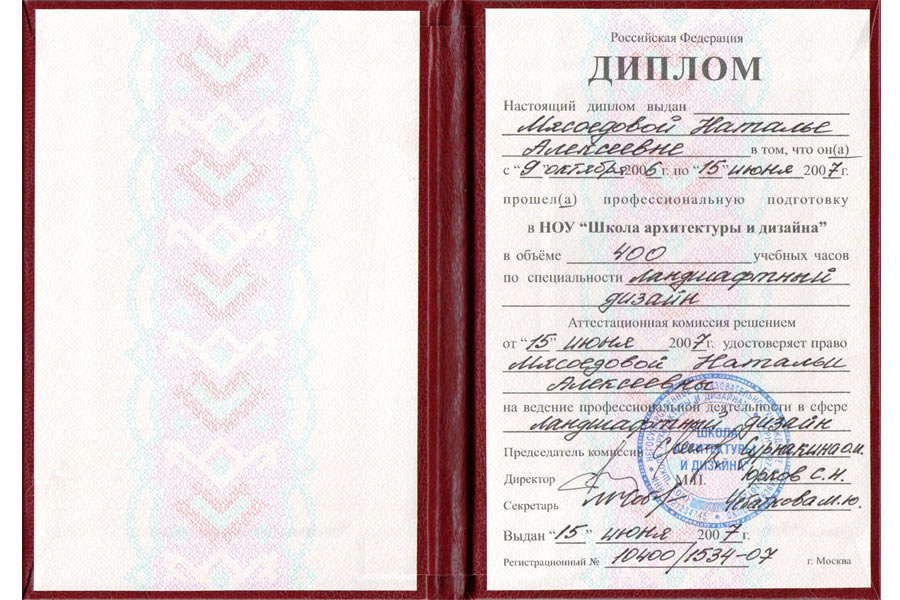 Российская Федерация
ДИПЛОМ
Настоящий диплом выдан
Мясоедовой Наталье
Алексеевне в том, что он(а)
с “9” октября 2006 г. по “15” июня 2007 г.
прошел(а) профессиональную подготовку
в НОУ “Школа архитектуры и дизайна”
в объёме 400 учебных часов
по специальности Ландшафтный
дизайн
Аттестационная комиссия решением
от “15” июня 2007 г. удостоверяет право
Мясоедовой Натальи
Алексеевны
на ведение профессиональной деятельности в сфере
Ландшафтный дизайн
Председатель комиссии
Директор М.П. Юрлов С.Н.
Секретарь
ШКОЛА
АРХИТЕКТУРЫ
И ДИЗАЙНА
Выдан “15” июня 2007 г.
Регистрационный № 10400/1534-07 г. Москва